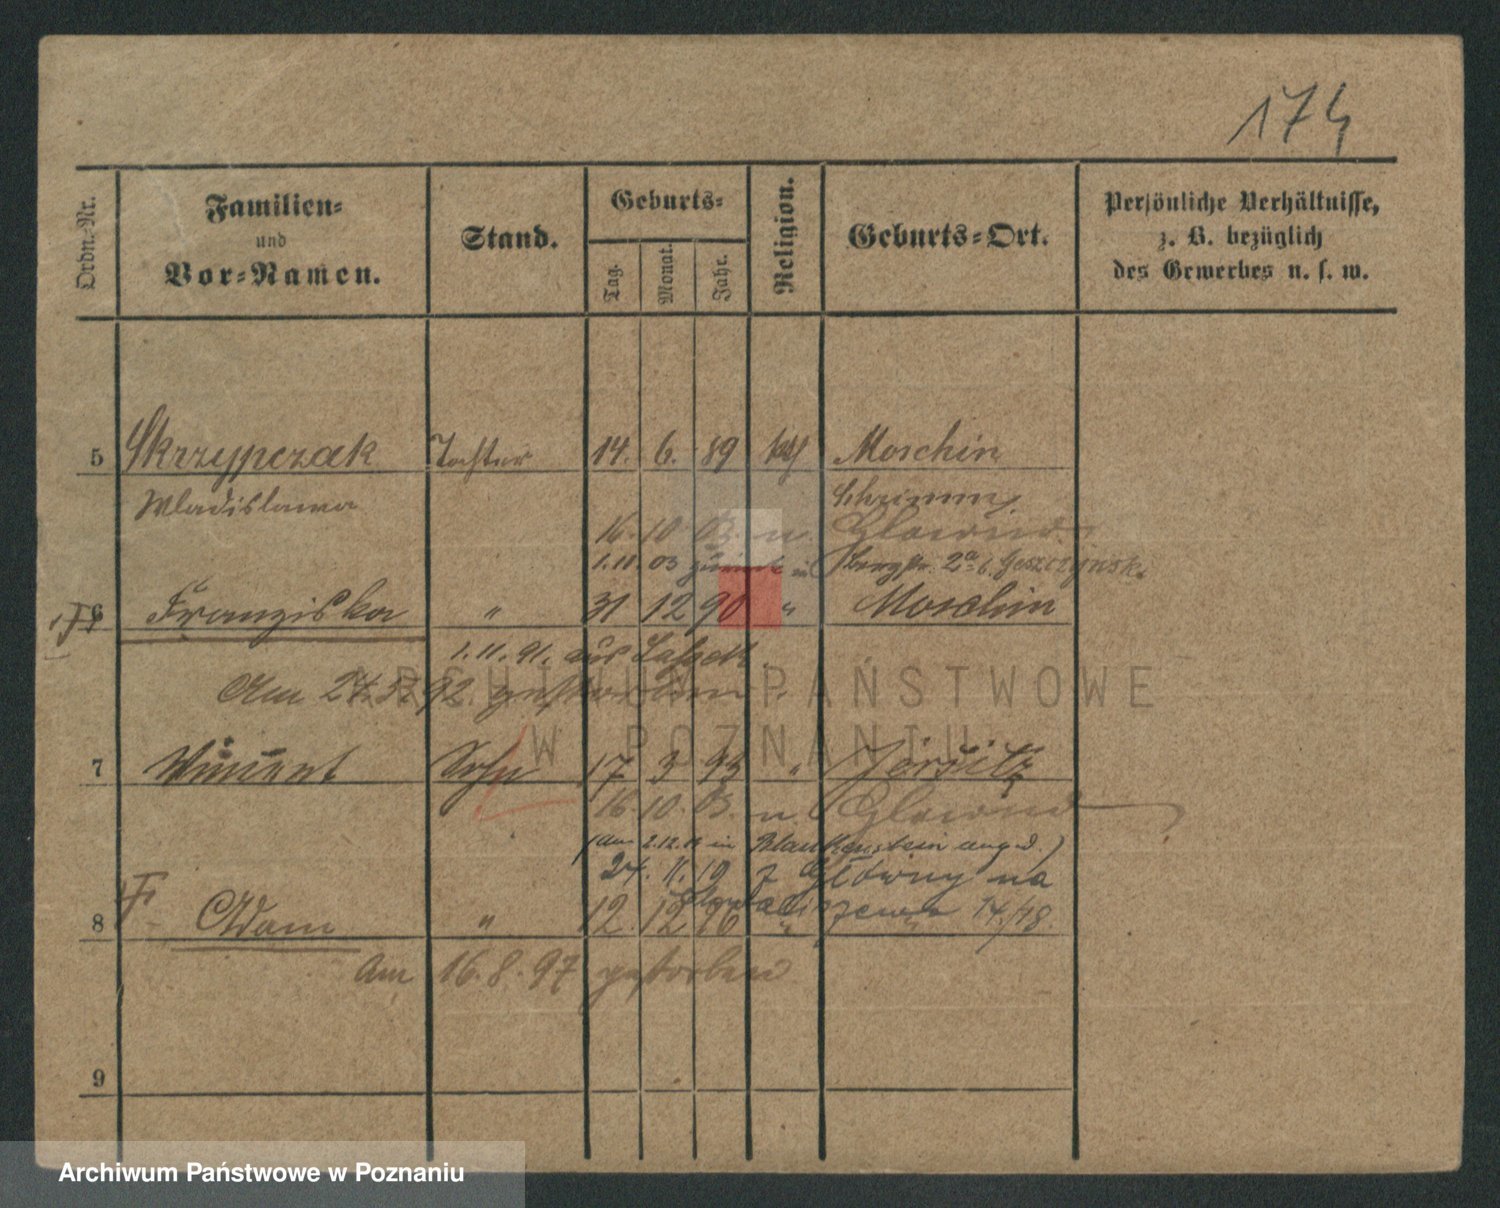 174
Ordn.-Nr.
Familien-
und
Vor-Namen.
Stand.
Geburts-
Tag.
Monat.
Jahr.
Religion.
Geburts-Ort.
Persönliche Verhältnisse,
z. B. bezüglich
des Gewerbes u. s. w.
5 Skrzypczak Tochter 14. 6. 89 kath Moschin
Wladislawa Schrimm
16. 10 03. n. Glowno
1.11.03 zurück in 2a b.
6 Franziska " 31 12 90 " Moschin
1.11.91. aus
Am 92. gestorben
7 Vincent Sohn 17 3 93 " Jersitz
16. 10. 03. n. Glowno
(am 2.12. in Blankenstein angem.)
24. 11. 19 z Główny na
8 Adam " 12 12 96 " 14/18.
Am 16. 8. 97 gestorben
9
ARCHIWUM PAŃSTWOWE
W POZNANIU
Archiwum Państwowe w Poznaniu